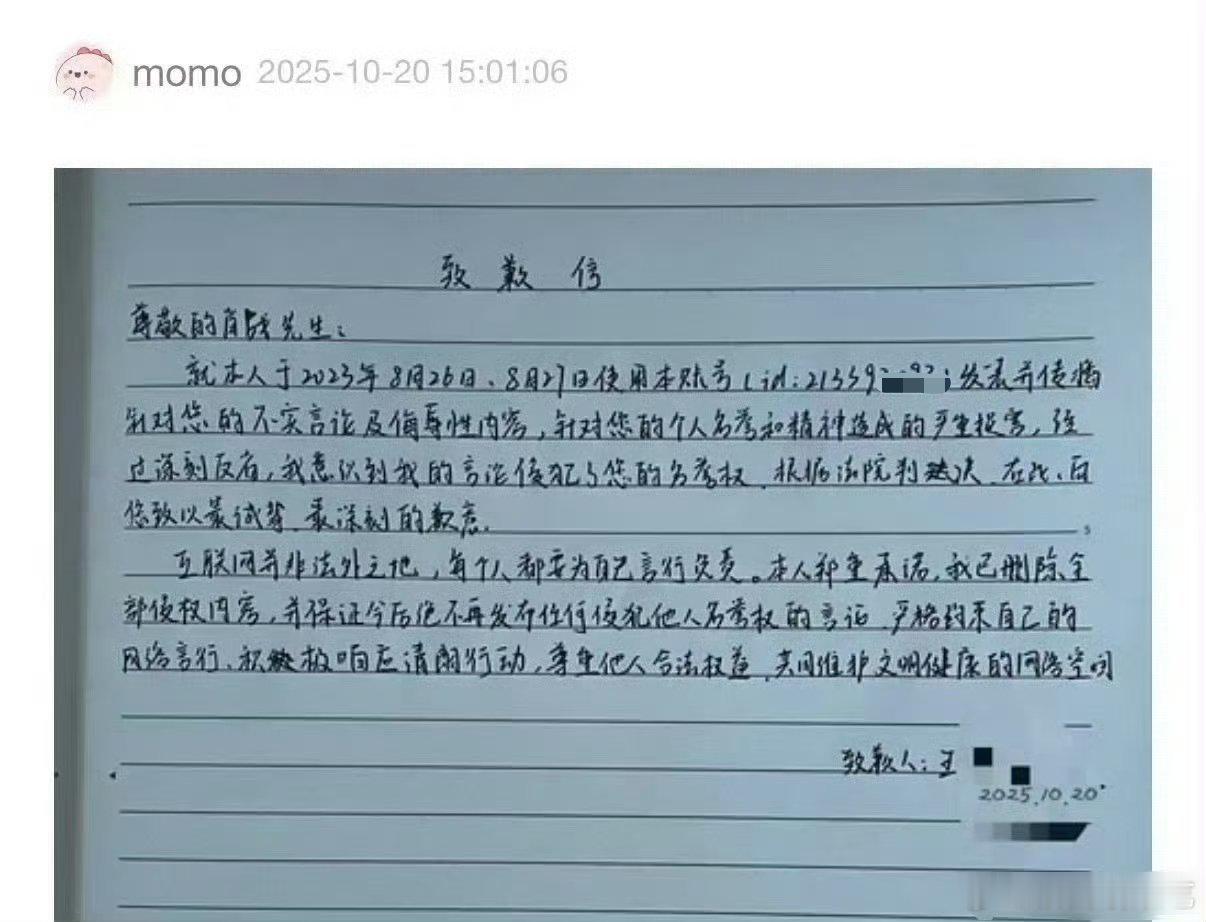 momo 2025-10-20 15:01:06
致歉信
尊敬的肖战先生：
就本人于2023年8月26日、8月27日使用本账号(id:21359)发表并传播
针对您的不实言论及侮辱性内容，针对您的个人名誉和精神造成的严重损害，经
过深刻反省，我意识到我的言论侵犯了您的名誉权、根据法院判决、在此、向
您致以最诚挚、最深刻的歉意。
互联网并非法外之地，每个人都要为自己言行负责。本人郑重承诺，我已删除全
部侵权内容，并保证今后绝不再发布任何侵犯他人名誉权的言论 严格约束自己的
网络言行、积极响应清朗行动，尊重他人合法权益、共同维护文明健康的网络空间
致歉人：王
2025.10.20.